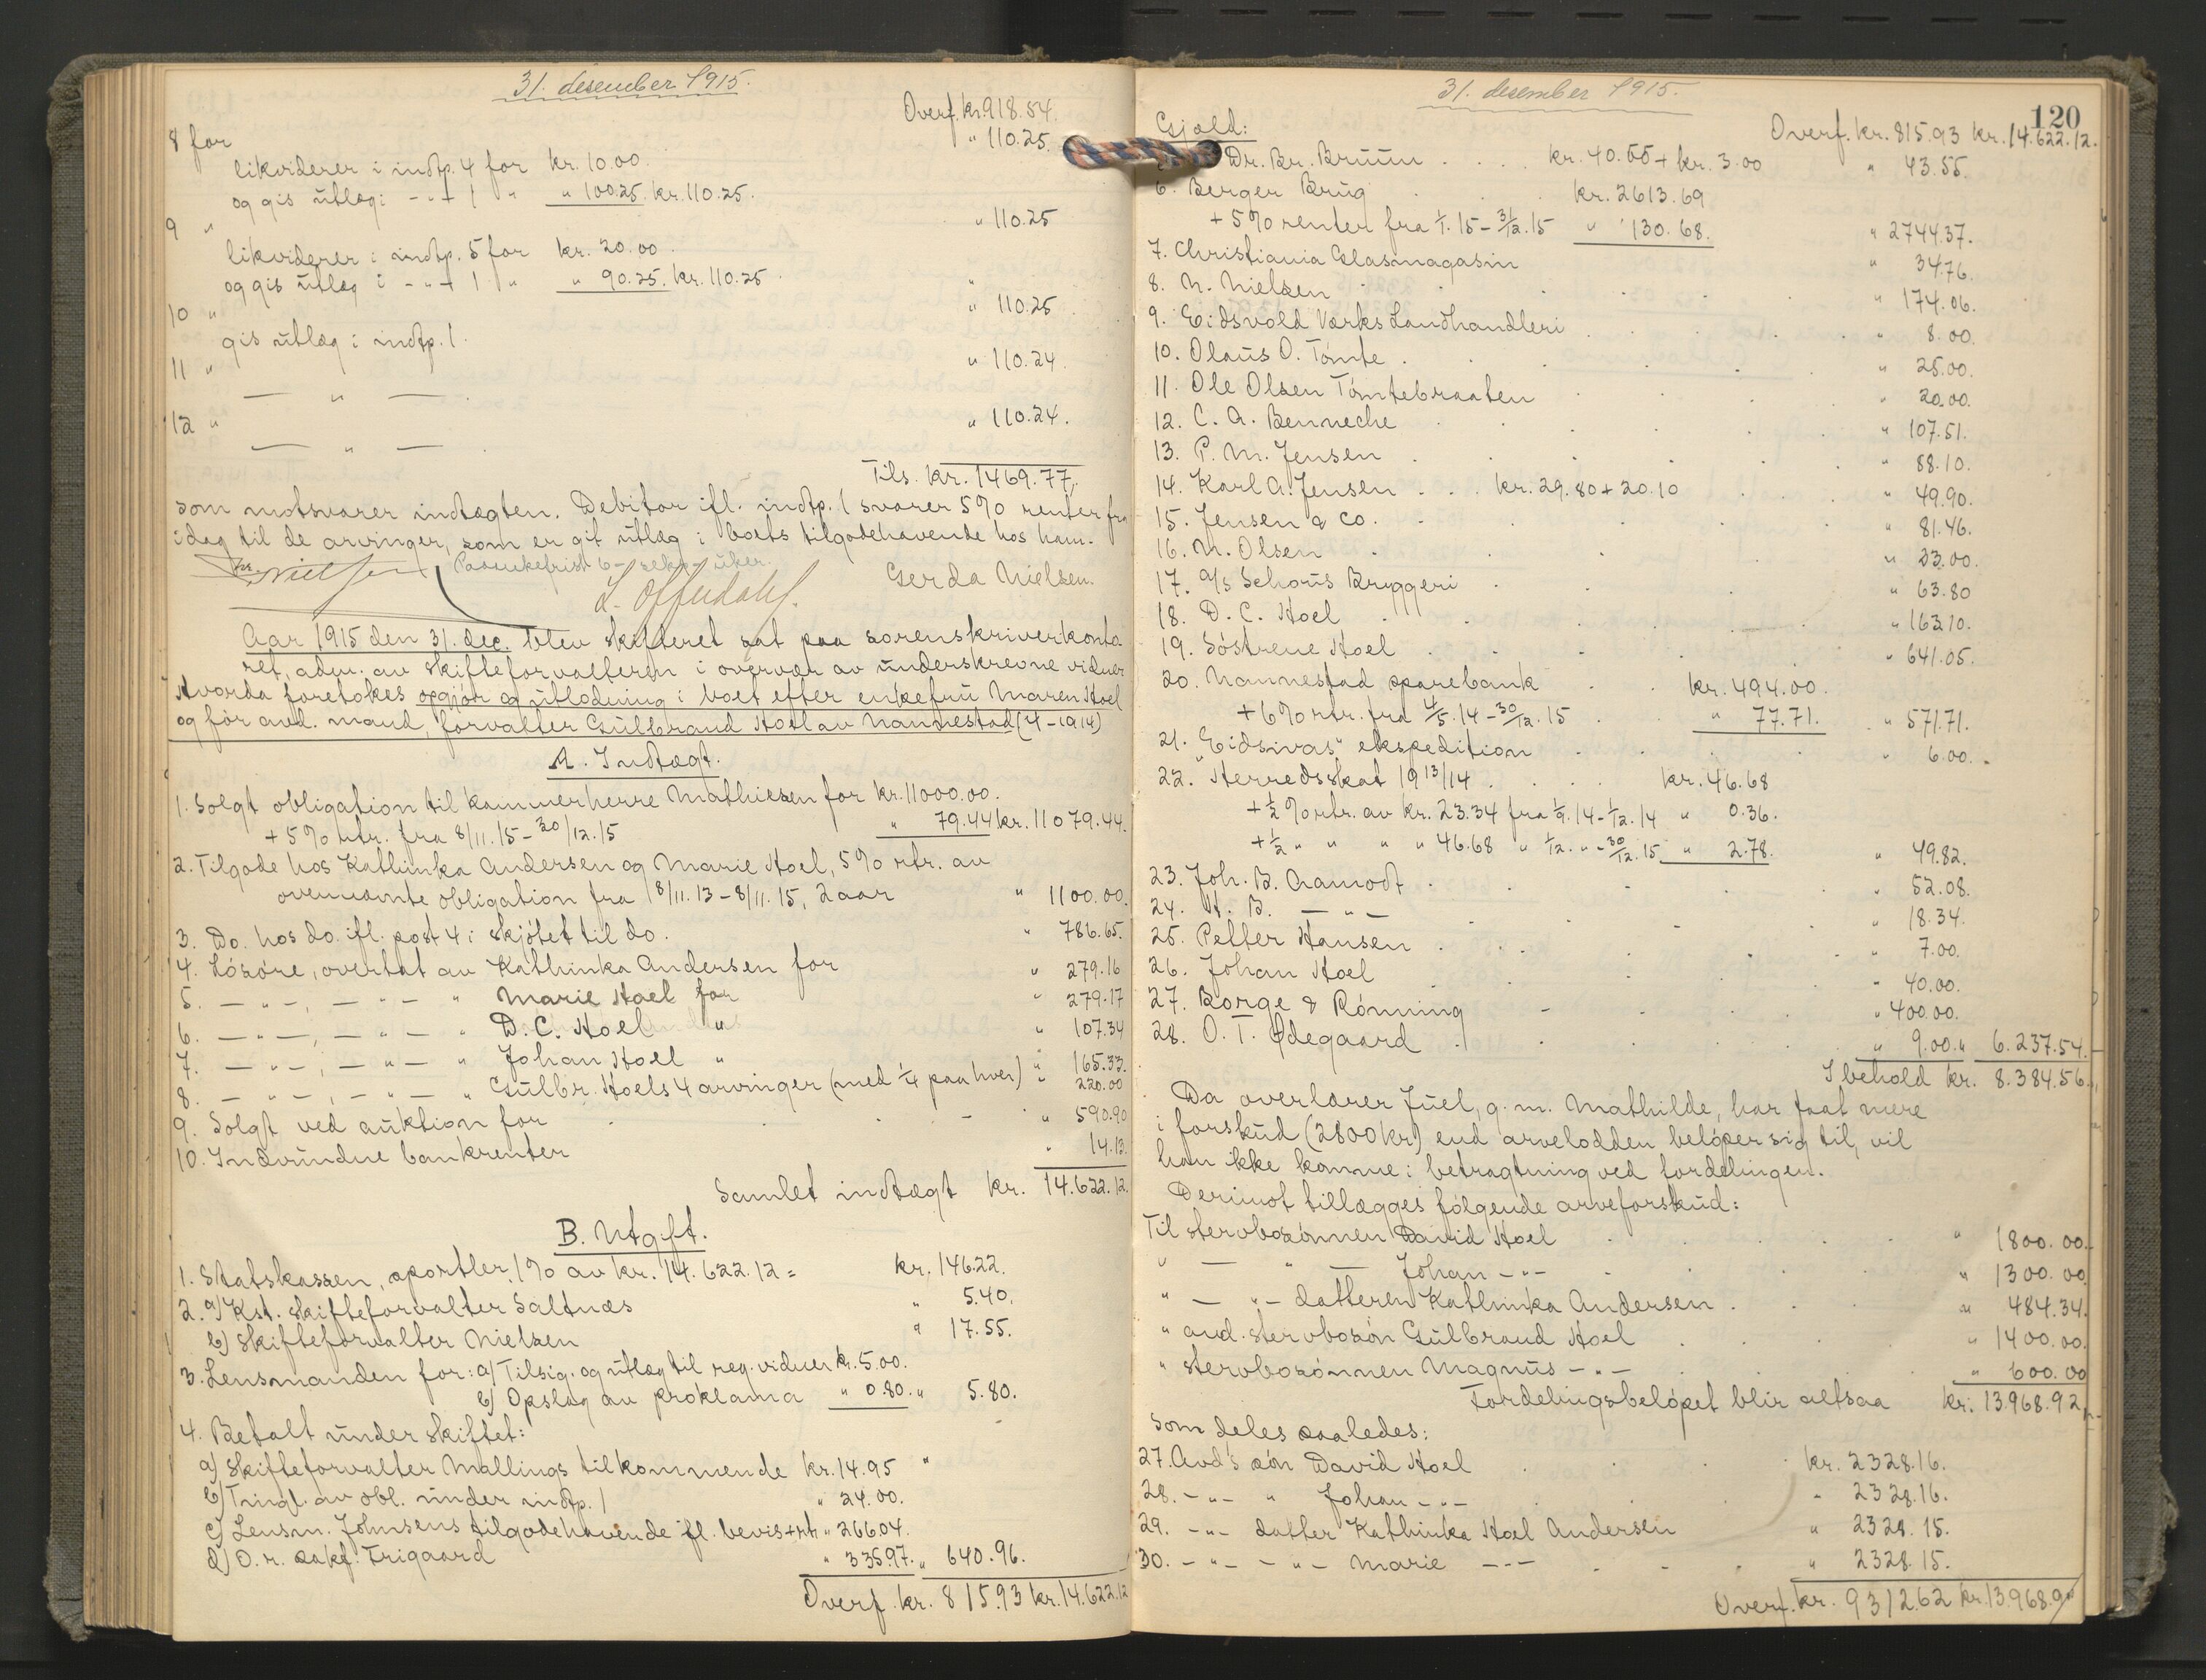 31. desember 1915.
Overf. kr. 918.54.
8 for " 110.25.
likviderer i indtp. 4 for kr. 10.00.
og gis utlæg i - " - 1 " " 100.25. kr. 110.25.
9 " " 110.25
likviderer i indtp. 5 for kr. 20.00.
og gis utlæg i - " - 1 " " 90.25. kr. 110.25.
10 " " 110.25
gis utlæg i indtp. 1.
11 " " 110.24.
— " —
12 " " 110.24.
— " —
Tils. kr. 1469.77,
som motsvarer indtægten. Debitor ifl. indtp. 1 svarer 5% renter fra
idag til de arvinger, som er git utlæg i boets tilgodehavende hos ham.
Paaankefrist 6 - seks - uker.
Nielsen L. Offerdahl. Gerda Nielsen.
Aar 1915 den 31. dec. blev skifteret sat paa sorenskriverkonto-
ret, adm. av skifteforvalteren i overvær av underskrevne vidner
Hvorda foretokes opgjør og utlodning i boet efter enkefru Maren Hoel
og før avd. mand, forvalter Gulbrand Hoel av Nannestad (4-1914)
A. Indtægt.
1. Solgt obligation til kammerherre Mathiesen for kr. 11000.00.
+ 5% rtr. fra 8/11.15 - 30/12.15 " 79.44 kr. 11079.44.
2. Tilgode hos Kathinka Andersen og Marie Hoel, 5% rtr. av
ovennævnte obligation fra 8/11.13 - 8/11.15, 2 aar " 1100.00.
3. Do. hos do. ifl. post 4 i skjøtet til do. " 786.65.
4. Løsøre, overtat av Kathinka Andersen for " 279.16
5. — " —, — " — " Marie Hoel for " 279.17
6. — " —, — " — " D. C. Hoel " " 107.34
7. — " —, — " — " Johan Hoel " " 165.33.
8. — " —, — " — " Gulbr. Hoels 4 arvinger (med 1/4 paa hver) " 220.00
9. Solgt ved auktion for " 590.90
10. Indvundne bankrenter " 14.13.
Samlet indtægt kr. 14.622.12.
B. Utgift.
1. Statskassen, sportler 1% av kr. 14.622.12 = kr. 146.22.
2. a) Kst. skifteforvalter Saltnæs " 5.40.
b) Skifteforvalter Nielsen " 17.55.
3. Lensmanden for: a) Tilsig. og utlæg til reg. vidner kr. 5.00.
b) Opslag av proklama " 0.80. " 5.80.
4. Betalt under skiftet:
a) Skifteforvalter Mallings tilkommende kr. 14.95 "
b) Tingl. av obl. under indtp. 1 " 24.00.
c) Lensm. Johnsens tilgodehavende ifl. bevis + rtr " 266.04.
d) O. r. sakf. Frigaard " 335.97. " 640.96.
Overf. kr. 815.93 kr. 14.622.12
31. desember 1915.
120
Gjæld: Overf. kr. 815.93 kr. 14.622.12.
Dr. Br. Bruun . . . kr. 40.55 + kr. 3.00 " 43.55.
6. Berger Brug kr. 2613.69
+ 5% renter fra 1/1.15 - 31/12.15 " 130.68. " 2744.37.
7. Christiania Glasmagasin " 34.76.
8. N. Nielsen " 174.06.
9. Eidsvold Værks Landhandleri " 8.00.
10. Olaus O. Tømte " 25.00.
11. Ole Olsen Tømtebraaten " 20.00.
12. C. A. Benneche " 107.51.
13. P. M. Jensen " 88.10.
14. Karl A. Jensen . . . kr. 29.80 + 20.10 " 49.90.
15. Jensen & Co. " 81.46.
16. N. Olsen " 23.00.
17. A/S Schous Bryggeri " 63.80
18. D. C. Hoel " 163.10.
19. Søstrene Hoel " 641.05.
20. Nannestad sparebank kr. 494.00.
+ 6% rtr. fra 4/5.14 - 30/12.15 " 77.71. " 571.71.
21. "Eidsivas" ekspedition " 6.00.
22. Herredsskat 1913/14 kr. 46.68
+ 1/2% rtr. av kr. 23.34 fra 1/9.14 - 1/12.14 " 0.36.
+ 1/2 " " " " 46.68 " 1/12. " - 30/12.15 " 2.78. " 49.82.
23. Joh. B. Aamodt " 52.08.
24. H. B. — " — " 18.34.
25. Petter Hansen " 7.00.
26. Johan Hoel " 40.00.
27. Borge & Rønning " 400.00.
28. O. T. Ødegaard " 9.00. " 6.237.54.
I behold kr. 8.384.56.
Da overlærer Juel, g. m. Mathilde, har faat mere
i forskud (2800 kr) end arvelodden beløper sig til, vil
han ikke komme i betragtning ved fordelingen.
Derimot tillægges følgende arveforskud:
Til stervbosønnen David Hoel " 1800.00.
" — " — Johan — " — " 1300.00
" — " — datteren Kathinka Andersen . " 484.34.
" avd. stervbosøn Gulbrand Hoel " 1400.00.
" stervbosønnen Magnus — " — " 600.00
Fordelingsbeløpet blir altsaa kr. 13.968.92,
som deles saaledes:
27. Avd's søn David Hoel kr. 2328.16.
28. - " - " Johan - " - " 2328.16.
29. - " - datter Kathinka Hoel Andersen " 2328.15.
30. - " - - " - Marie - " - " 2328.15.
Overf. kr. 9312.62 kr. 13.968.90